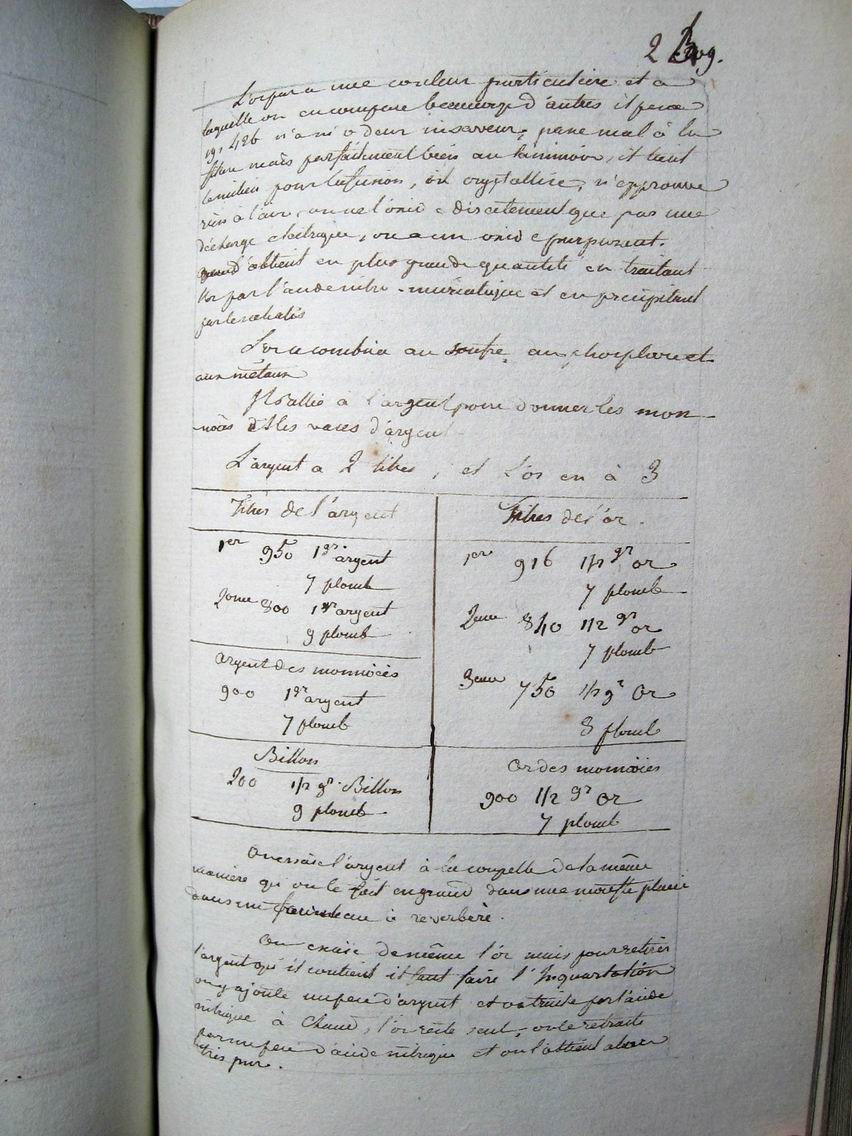 L'or pur a une couleur particuliere et a
laquelle on en compare beaucoup d'autres il pese
19,426 n'a ni odeur ni saveur, passe mal à la
filiere mais parfaitement bien au laminoir, il tient
le milieu pour la fusion, il crystallise, n'epprouve
rien à l'air, on ne l'oxide directement que par une
décharge électrique, on a un oxide purpurent.
on l'obtient en plus grande quantité en traitant
l'or par l'acide nitro-muriatique et en precipitant
par les alcalis
L'or se combine au soufre, au phosphore et
aux métaux
Il s'allie à l'argent pour donner les mon-
noies et les vases d'argent
L'argent a 2 titres, et l'or en à 3
Titres de l'argent
1er 950 1gr argent
7 plomb
2eme 800 1gr argent
9 plomb
argent des monnoies
900 1gr argent
7 plomb
Billon
200 1/2 gr Billon
9 plomb
Titres de l'or.
1er 916 1/2 gr or
7 plomb
2eme 840 1/2 gr or
7 plomb
3eme 750 1/2 gr or
8 plomb
Or des monnoies
900 1/2 gr or
7 plomb
On essaie l'argent à la coupelle de la même
maniere qu'on le fait en grand dans une moufle placée
dans un fourneau à reverbère.
On essaie de même l'or mais pour retirer
l'argent qu'il contient il faut faire l'Inquartation
on y ajoute un peu d'argent et on traite par l'acide
nitrique à chaud, l'or reste seul, on le retraite
par un peu d'acide nitrique et on l'obtient alors
très pur.